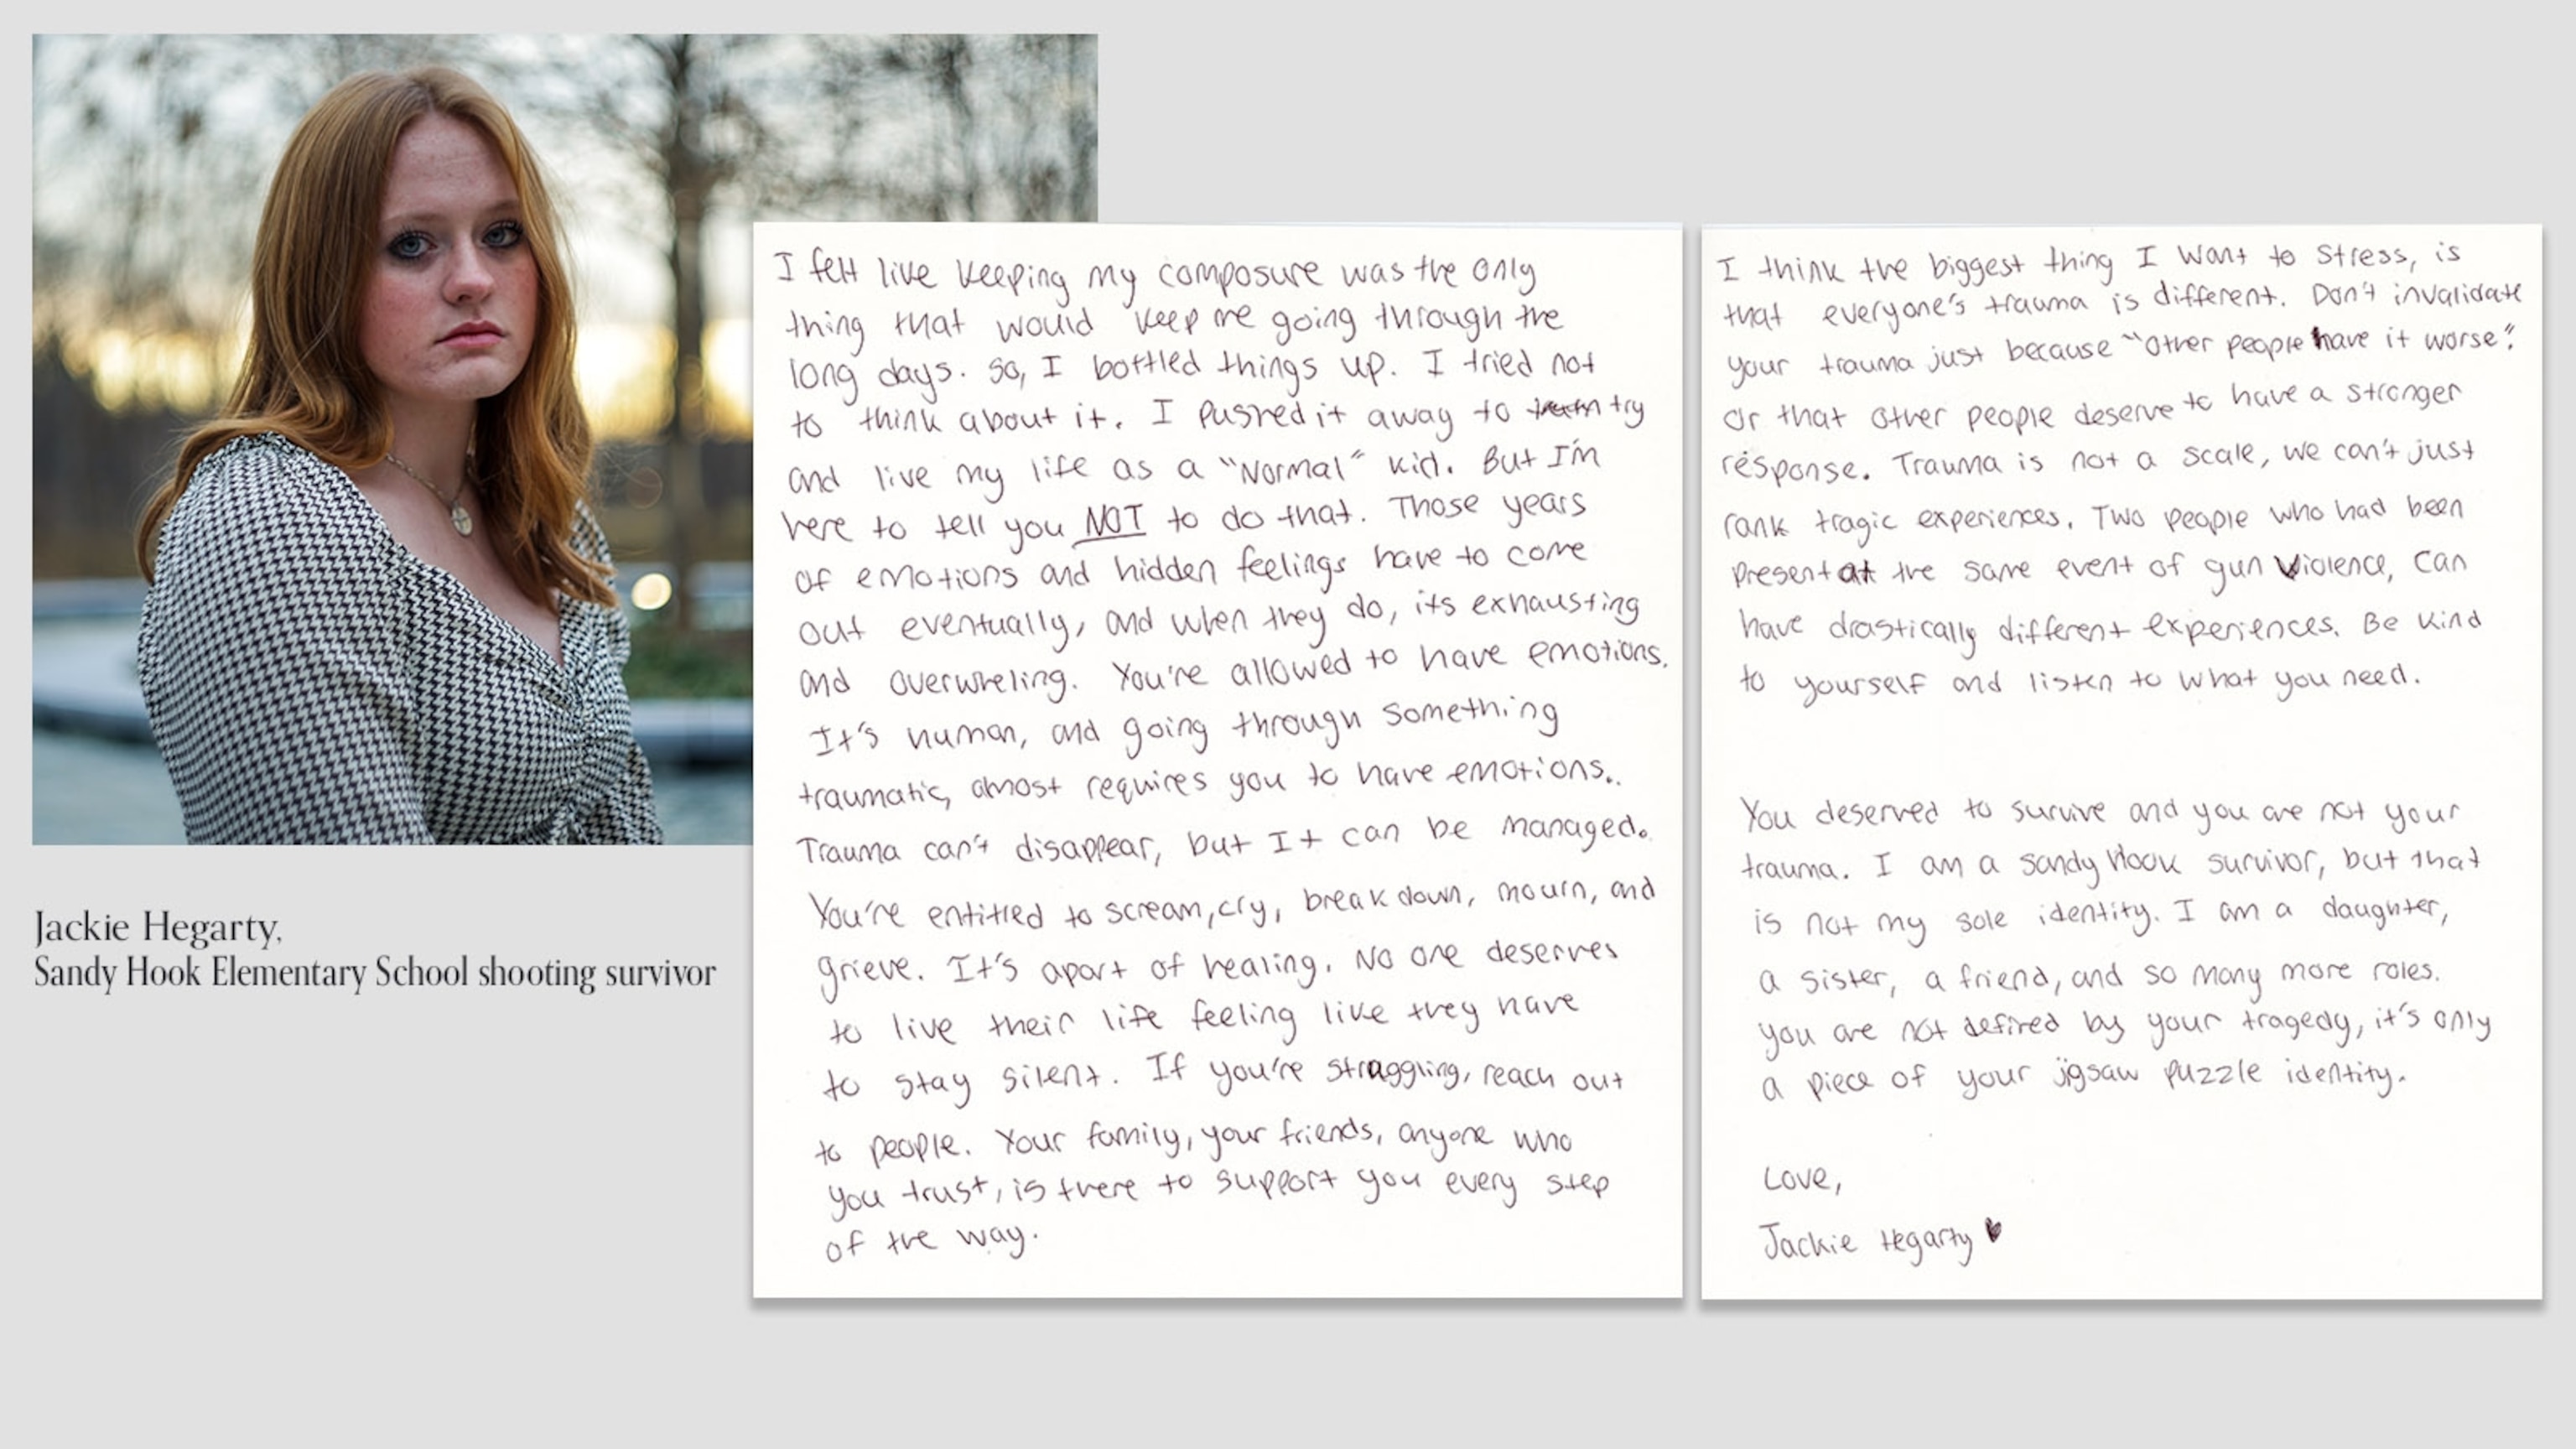 Jackie Hegarty,
Sandy Hook Elementary School shooting survivor
I felt live keeping my composure was the only
thing that would keep me going through the
long days. So, I bottled things up. I tried not
to think about it. I pushed it away to try
and live my life as a "Normal" kid. But I'm
here to tell you NOT to do that. Those years
of emotions and hidden feelings have to come
out eventually, and when they do, its exhausting
and overwheling. You're allowed to have emotions.
It's human, and going through something
traumatic, amost requires you to have emotions..
Trauma can't disappear, but It can be managed.
You're entitled to scream, cry, break down, mourn, and
grieve. It's apart of healing. No one deserves
to live their life feeling like they have
to stay silent. If you're struggling, reach out
to people. Your family, your friends, anyone who
you trust, is there to support you every step
of the way.
I think the biggest thing I want to stress, is
that everyone's trauma is different. Don't invalidate
your trauma just because "other people have it worse".
Or that other people deserve to have a stronger
response. Trauma is not a scale, we can't just
rank tragic experiences. Two people who had been
present at the same event of gun violence, can
have drastically different experiences. Be kind
to yourself and listen to what you need.
You deserved to survive and you are not your
trauma. I am a sandy Hook survivor, but that
is not my sole identity. I am a daughter,
a sister, a friend, and so many more roles.
you are not defined by your tragedy, it's only
a piece of your jigsaw puzzle identity.
Love,
Jackie Hegarty ♥